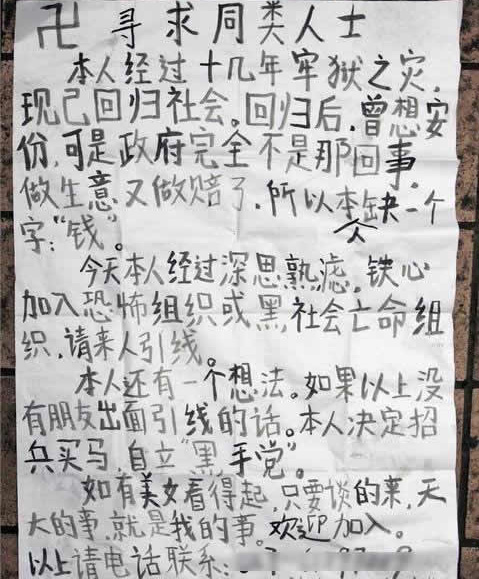 卍 寻求同类人士
本人经过十几年牢狱之灾,
现已回归社会。回归后,曾想安
份,可是政府完全不是那回事。
做生意又做赔了,所以本人缺一个
字:“钱”。
今天本人经过深思熟滤,铁心
加入恐怖组织或黑社会亡命组
织,请来人引线。
本人还有一个想法。如果以上没
有朋友出面引线的话。本人决定招
兵买马 自立“黑手党”。
如有美女看得起,只要谈的来,天
大的事,就是我的事。欢迎加入。
以上请电话联系: